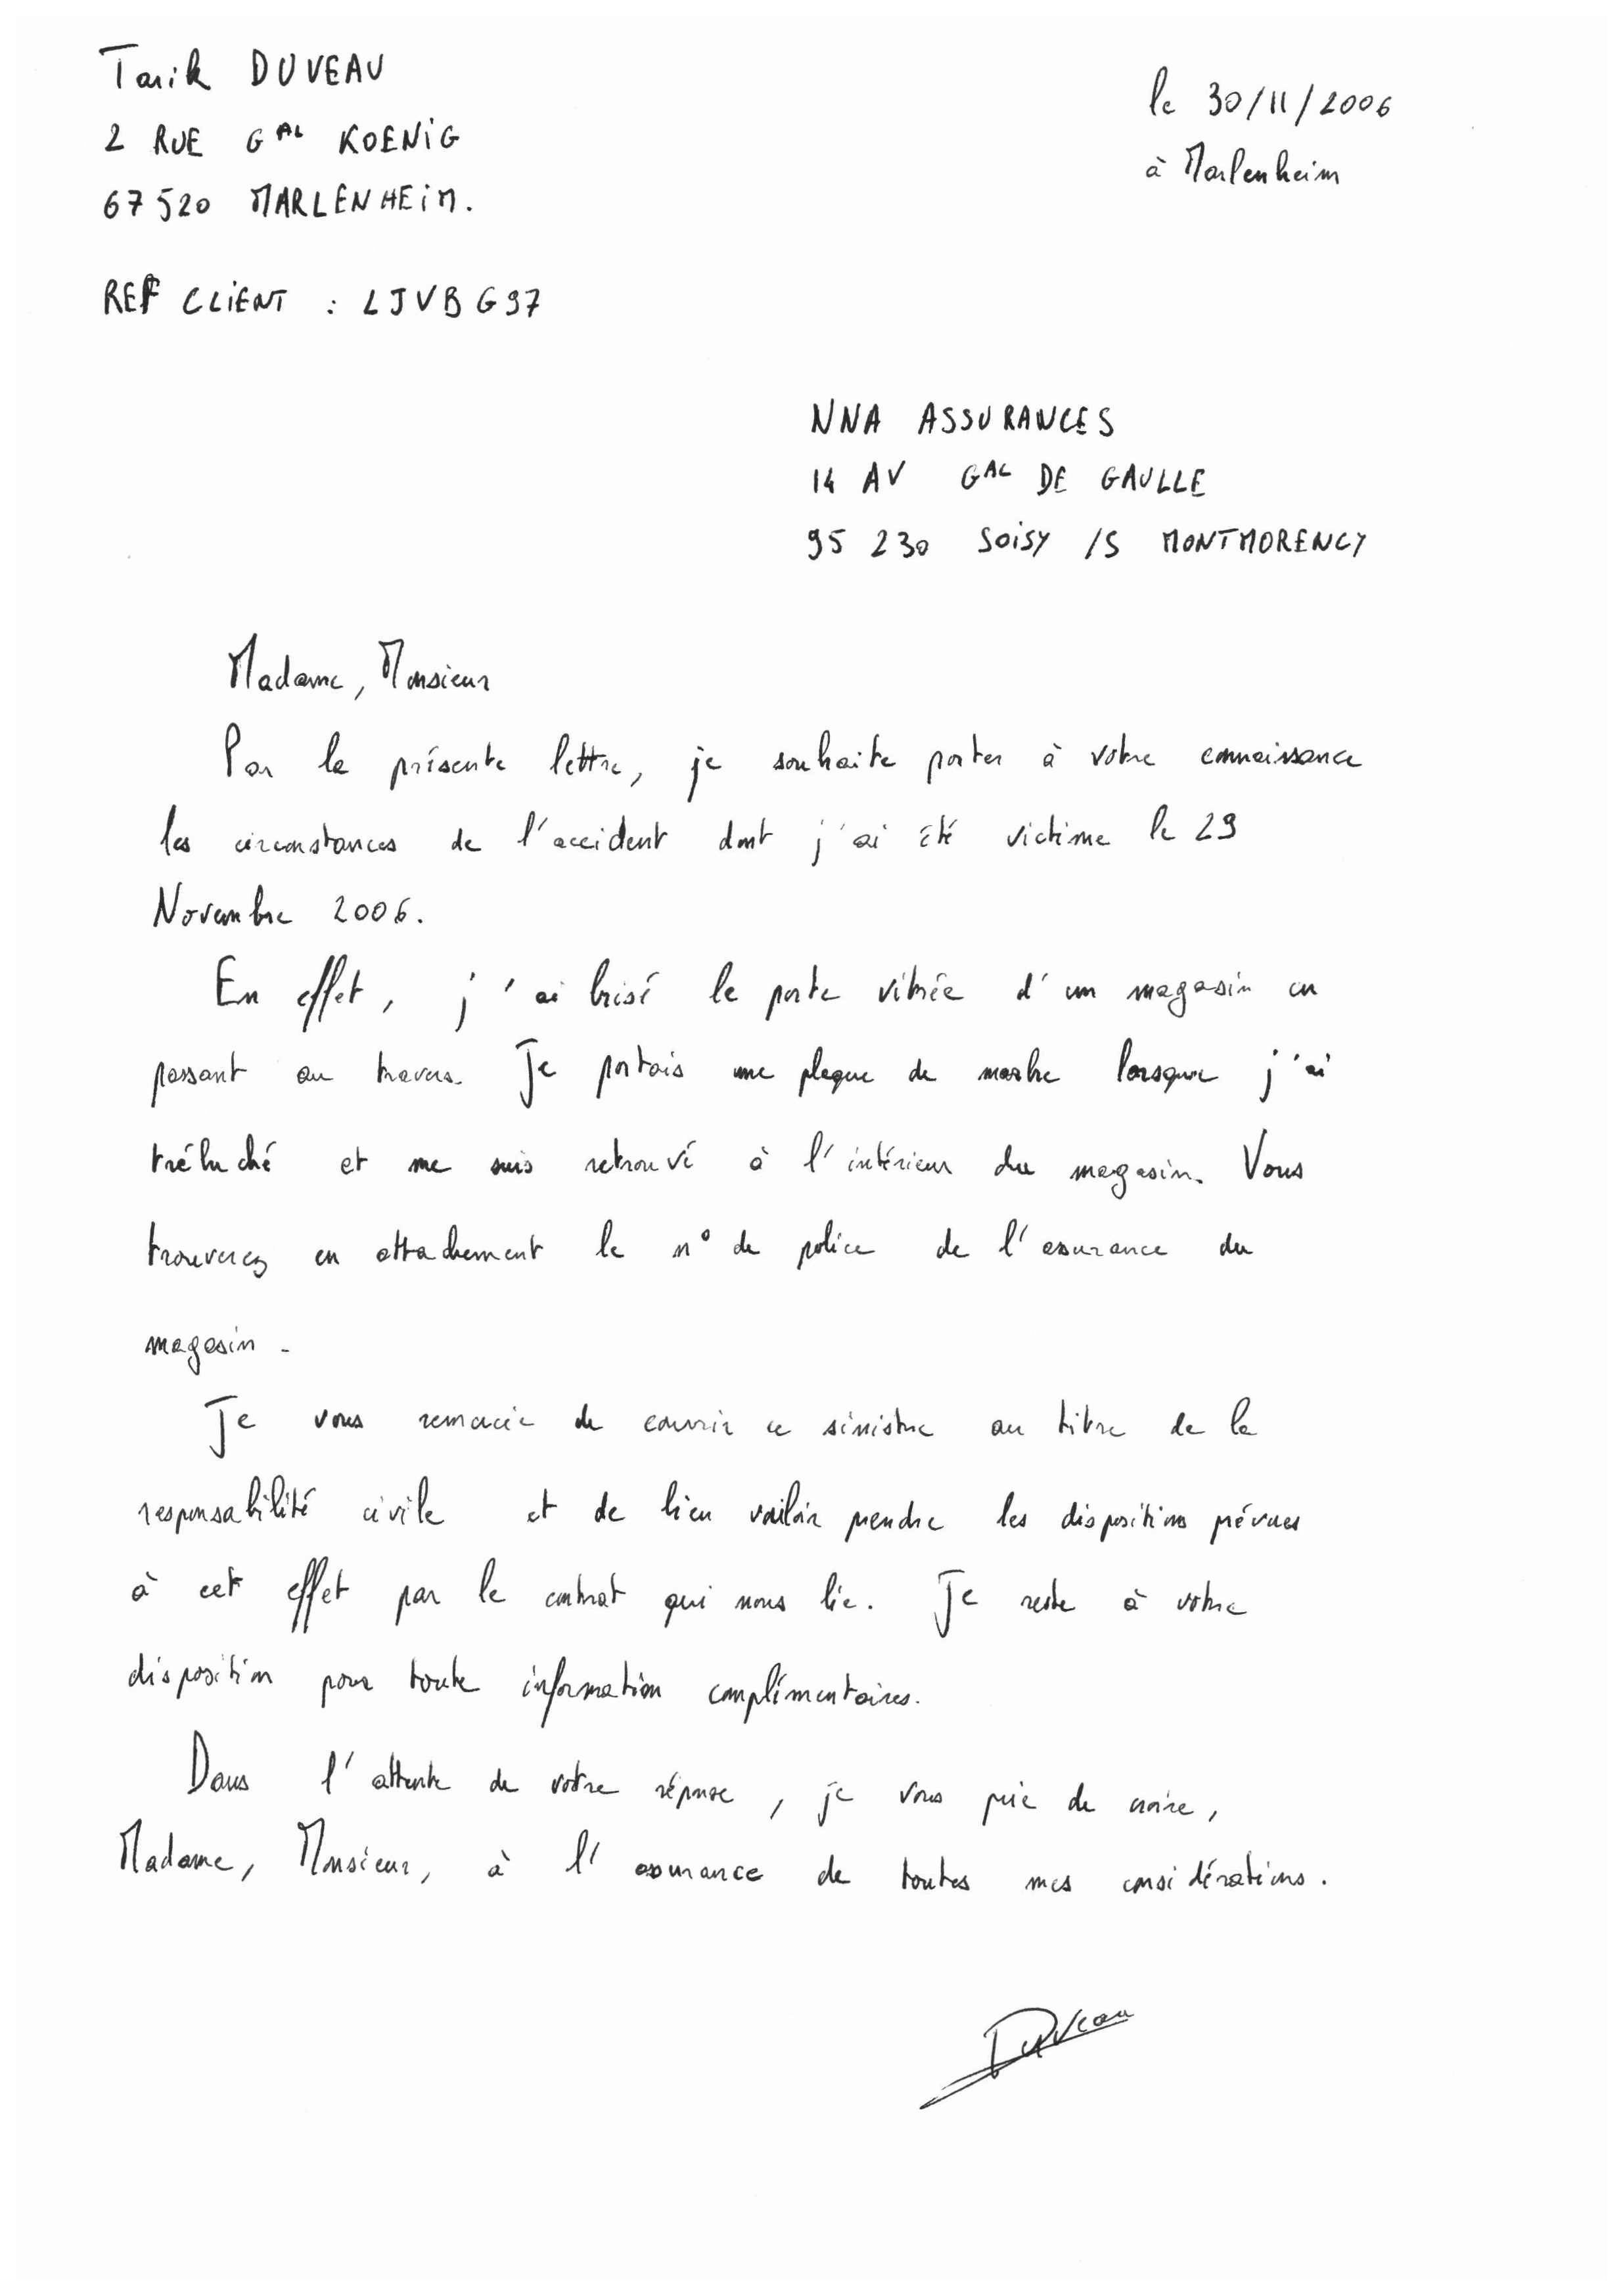 Tarik DUVEAU
2 RUE GAL KOENIG
67520 MARLENHEIM.
le 30/11/2006
à Marlenheim
REF CLIENT : LJVBG97
NNA ASSURANCES
14 AV GAL DE GAULLE
95 230 SOISY /S MONTMORENCY
Madame, Monsieur
Par la présente lettre, je souhaite porter à votre connaissance
les circonstances de l'accident dont j'ai été victime le 29
Novembre 2006.
En effet, j'ai brisé la porte vitrée d'un magasin en
passant au travers. Je portais une plaque de marbre lorsque j'ai
trébuché et me suis retrouvé à l'intérieur du magasin. Vous
trouverez en attachement le n° de police de l'assurance du
magasin.
Je vous remercie de couvrir ce sinistre au titre de la
responsabilité civile et de bien vouloir prendre les dispositions prévues
à cet effet par le contrat qui nous lie. Je reste à votre
disposition pour toute information complémentaires.
Dans l'attente de votre réponse, je vous prie de croire,
Madame, Monsieur, à l'assurance de toutes mes considérations.
Duveau